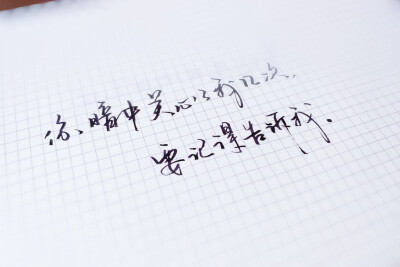 你、暗中关心了我几次,
要记谍告诉我.